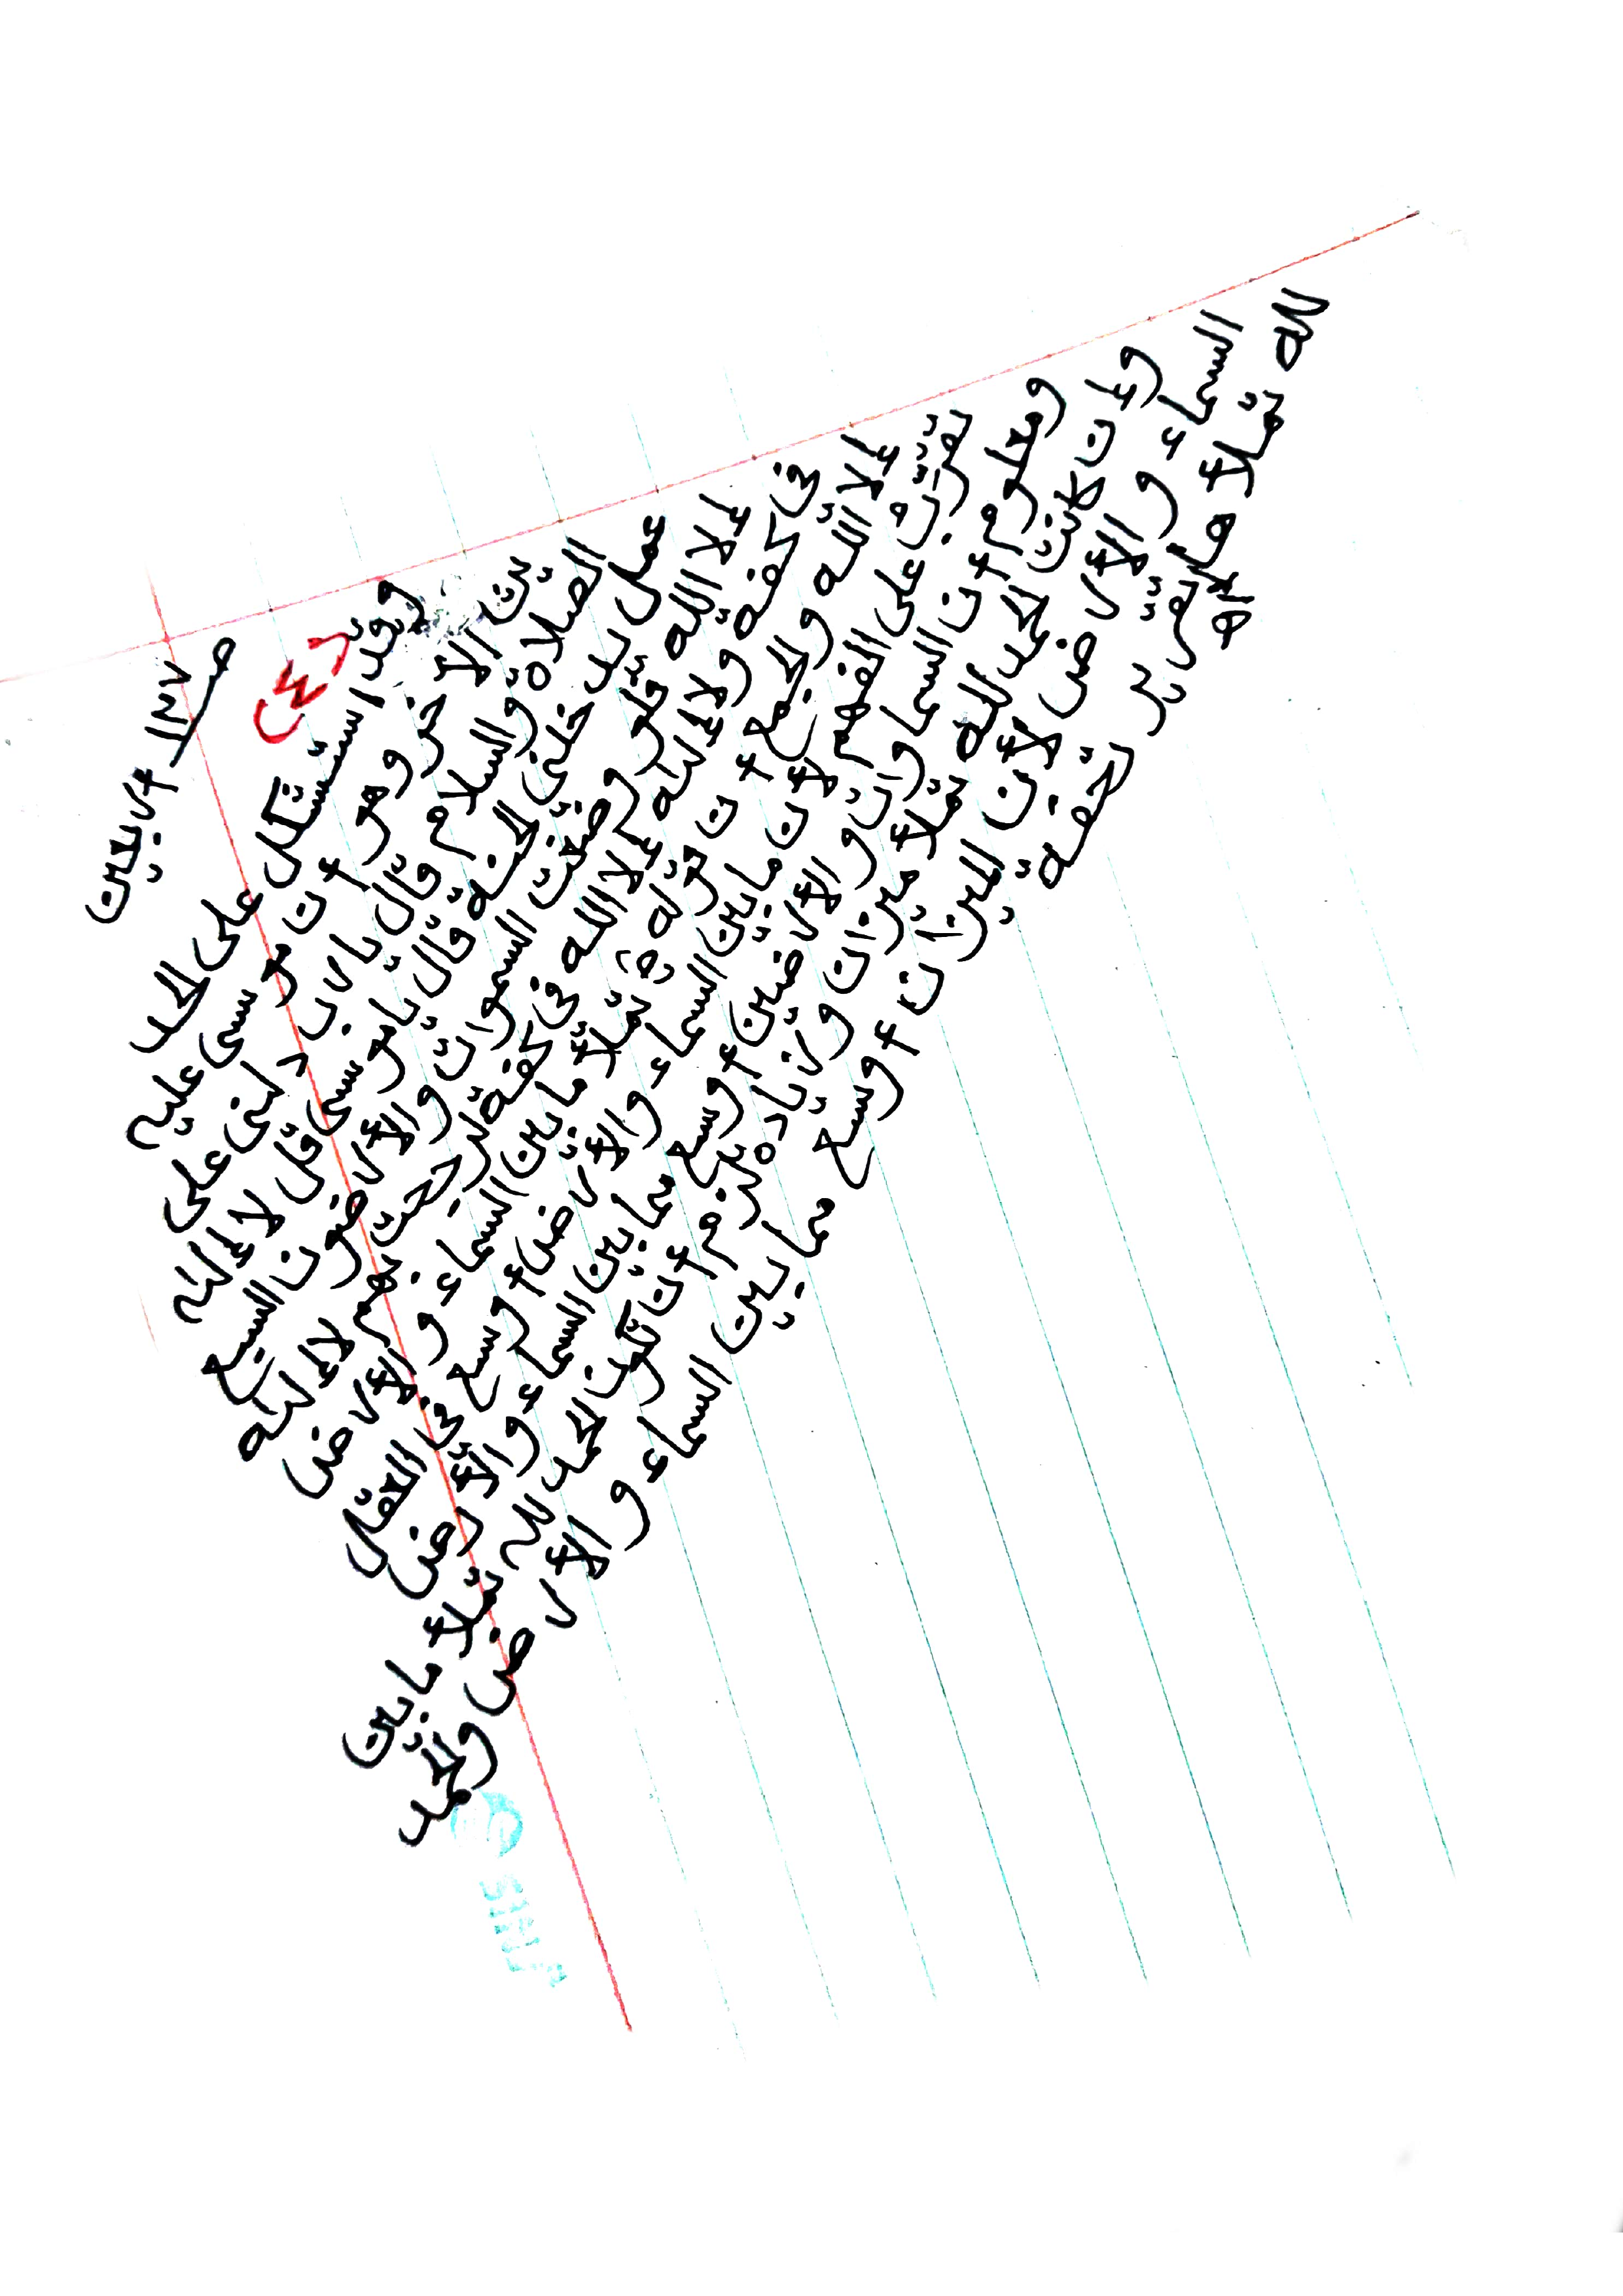 وقد استشكل على الحد
يث الآخر وهو أن موسى عليه
الصلاة والسلام قال يا رب دلني على
عمل يدخلني الجنة قال يا موسى قل لا إله
إلا الله فلو وضعت السموات والأرضون السبع
في كفة ولا إله إلا الله في كفة لرجحت بهم لا إله
إلا الله والجمع أن قوله تملأ ما بين السماء والأرض
يقرب على الفهم لأن ما بين السماء والأرض أوسع في العقل
ومعلوم أن السماوات والأرضين أوسع ما بين السماء والأرض
وإن كانت الحمد الله تملأ ميزان وزيادة يلزم أن تكون الحمد لله تملأ ما بين
السماء والأرض لأن الميزان أوسع ما بين السماء والأرض والحمد
الله تملأ